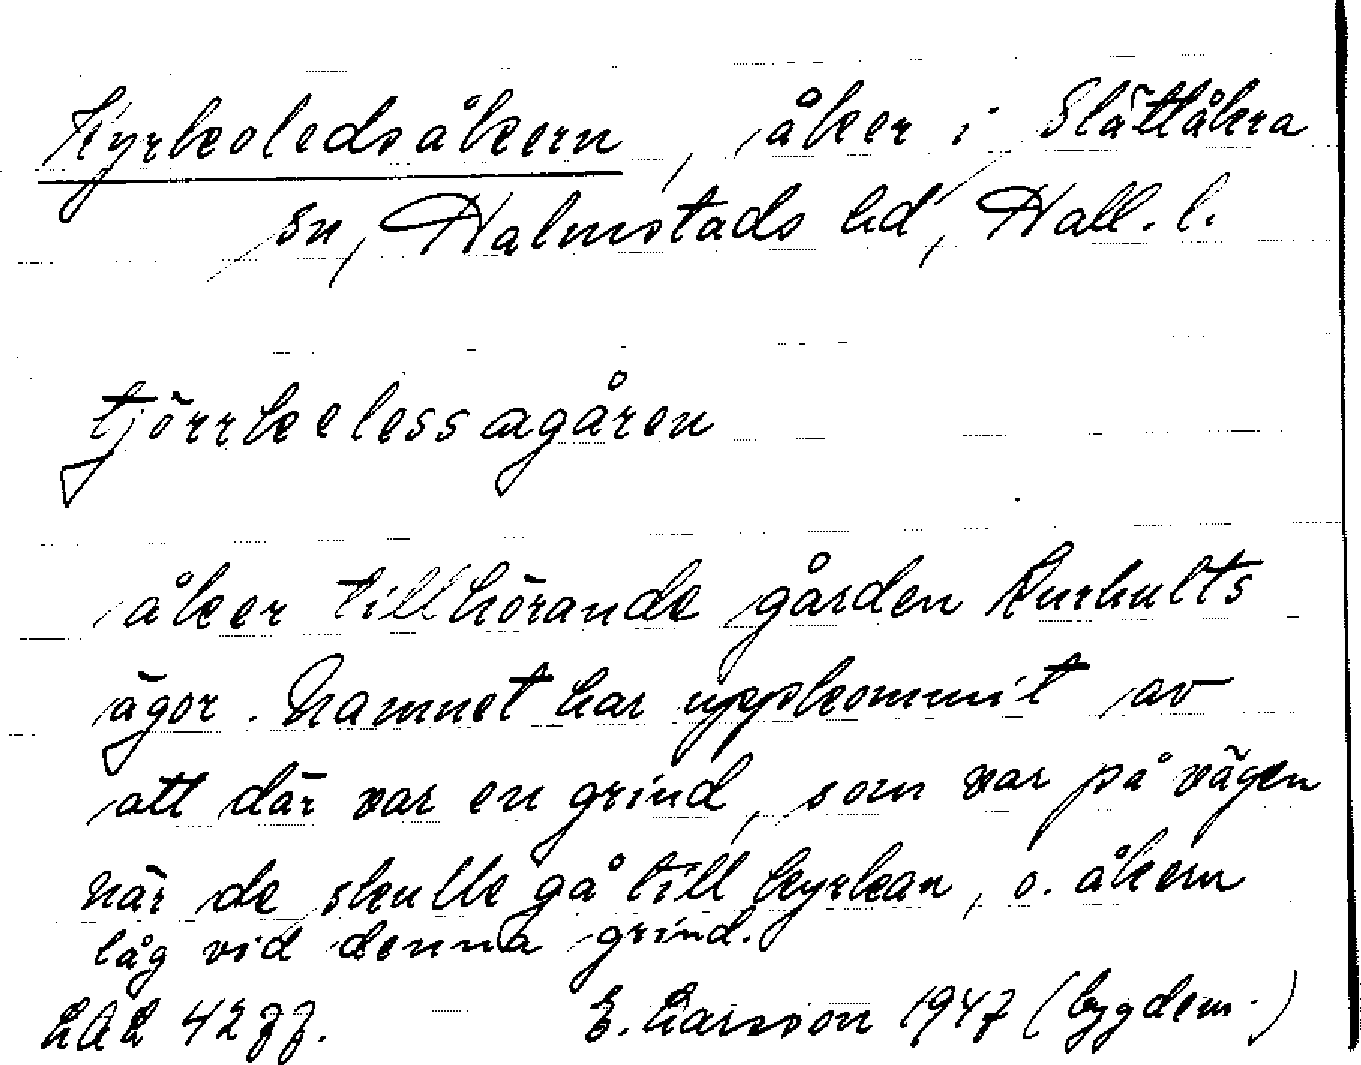 Kyrkoledsåkern, åker i Slättåkra
sn, Halmstads hd, Hall. l.
tjörrkelessagåren
åker tillhörande gården Kurhults
ägor. Namnet har uppkommit av
att där var en grind, som var på vägen
när de skulle gå till kyrkan, o. åkern
låg vid denna grind.
LAL 4277. E. Larsson 1947 (bygdem.)